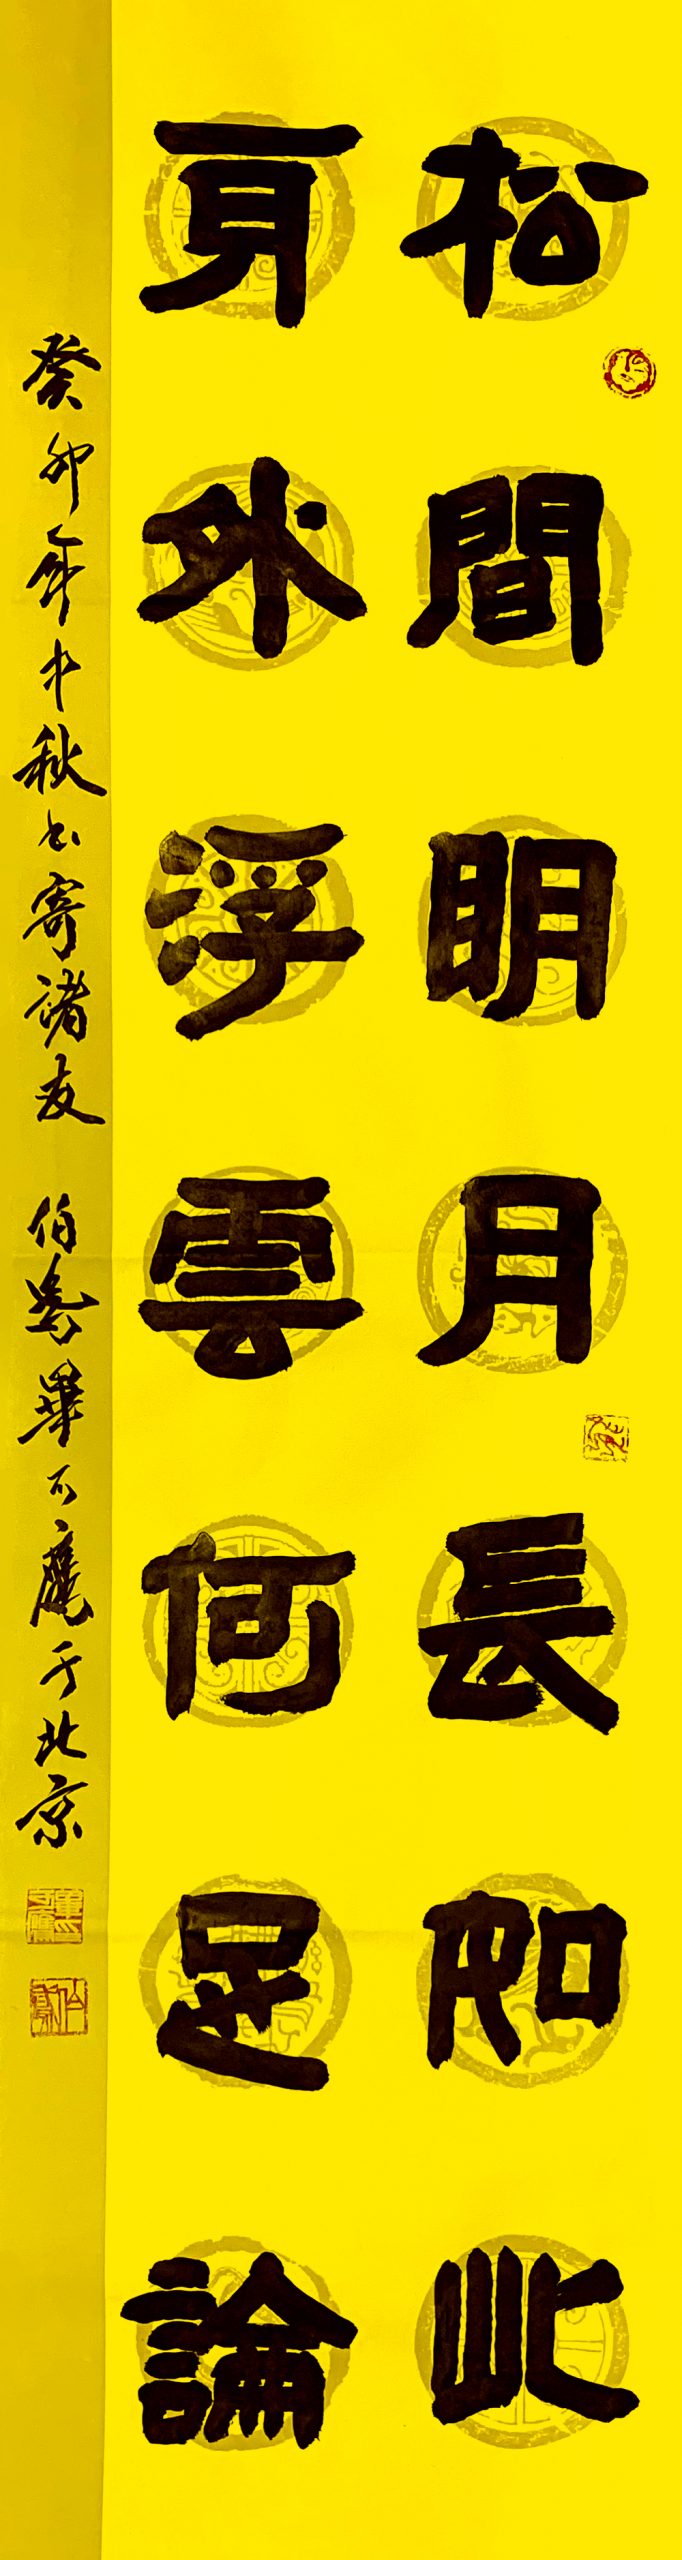 松間明月長如此
身外浮雲何足論
癸卯年中秋書寄諸友 伯駕畢可鷹于北京